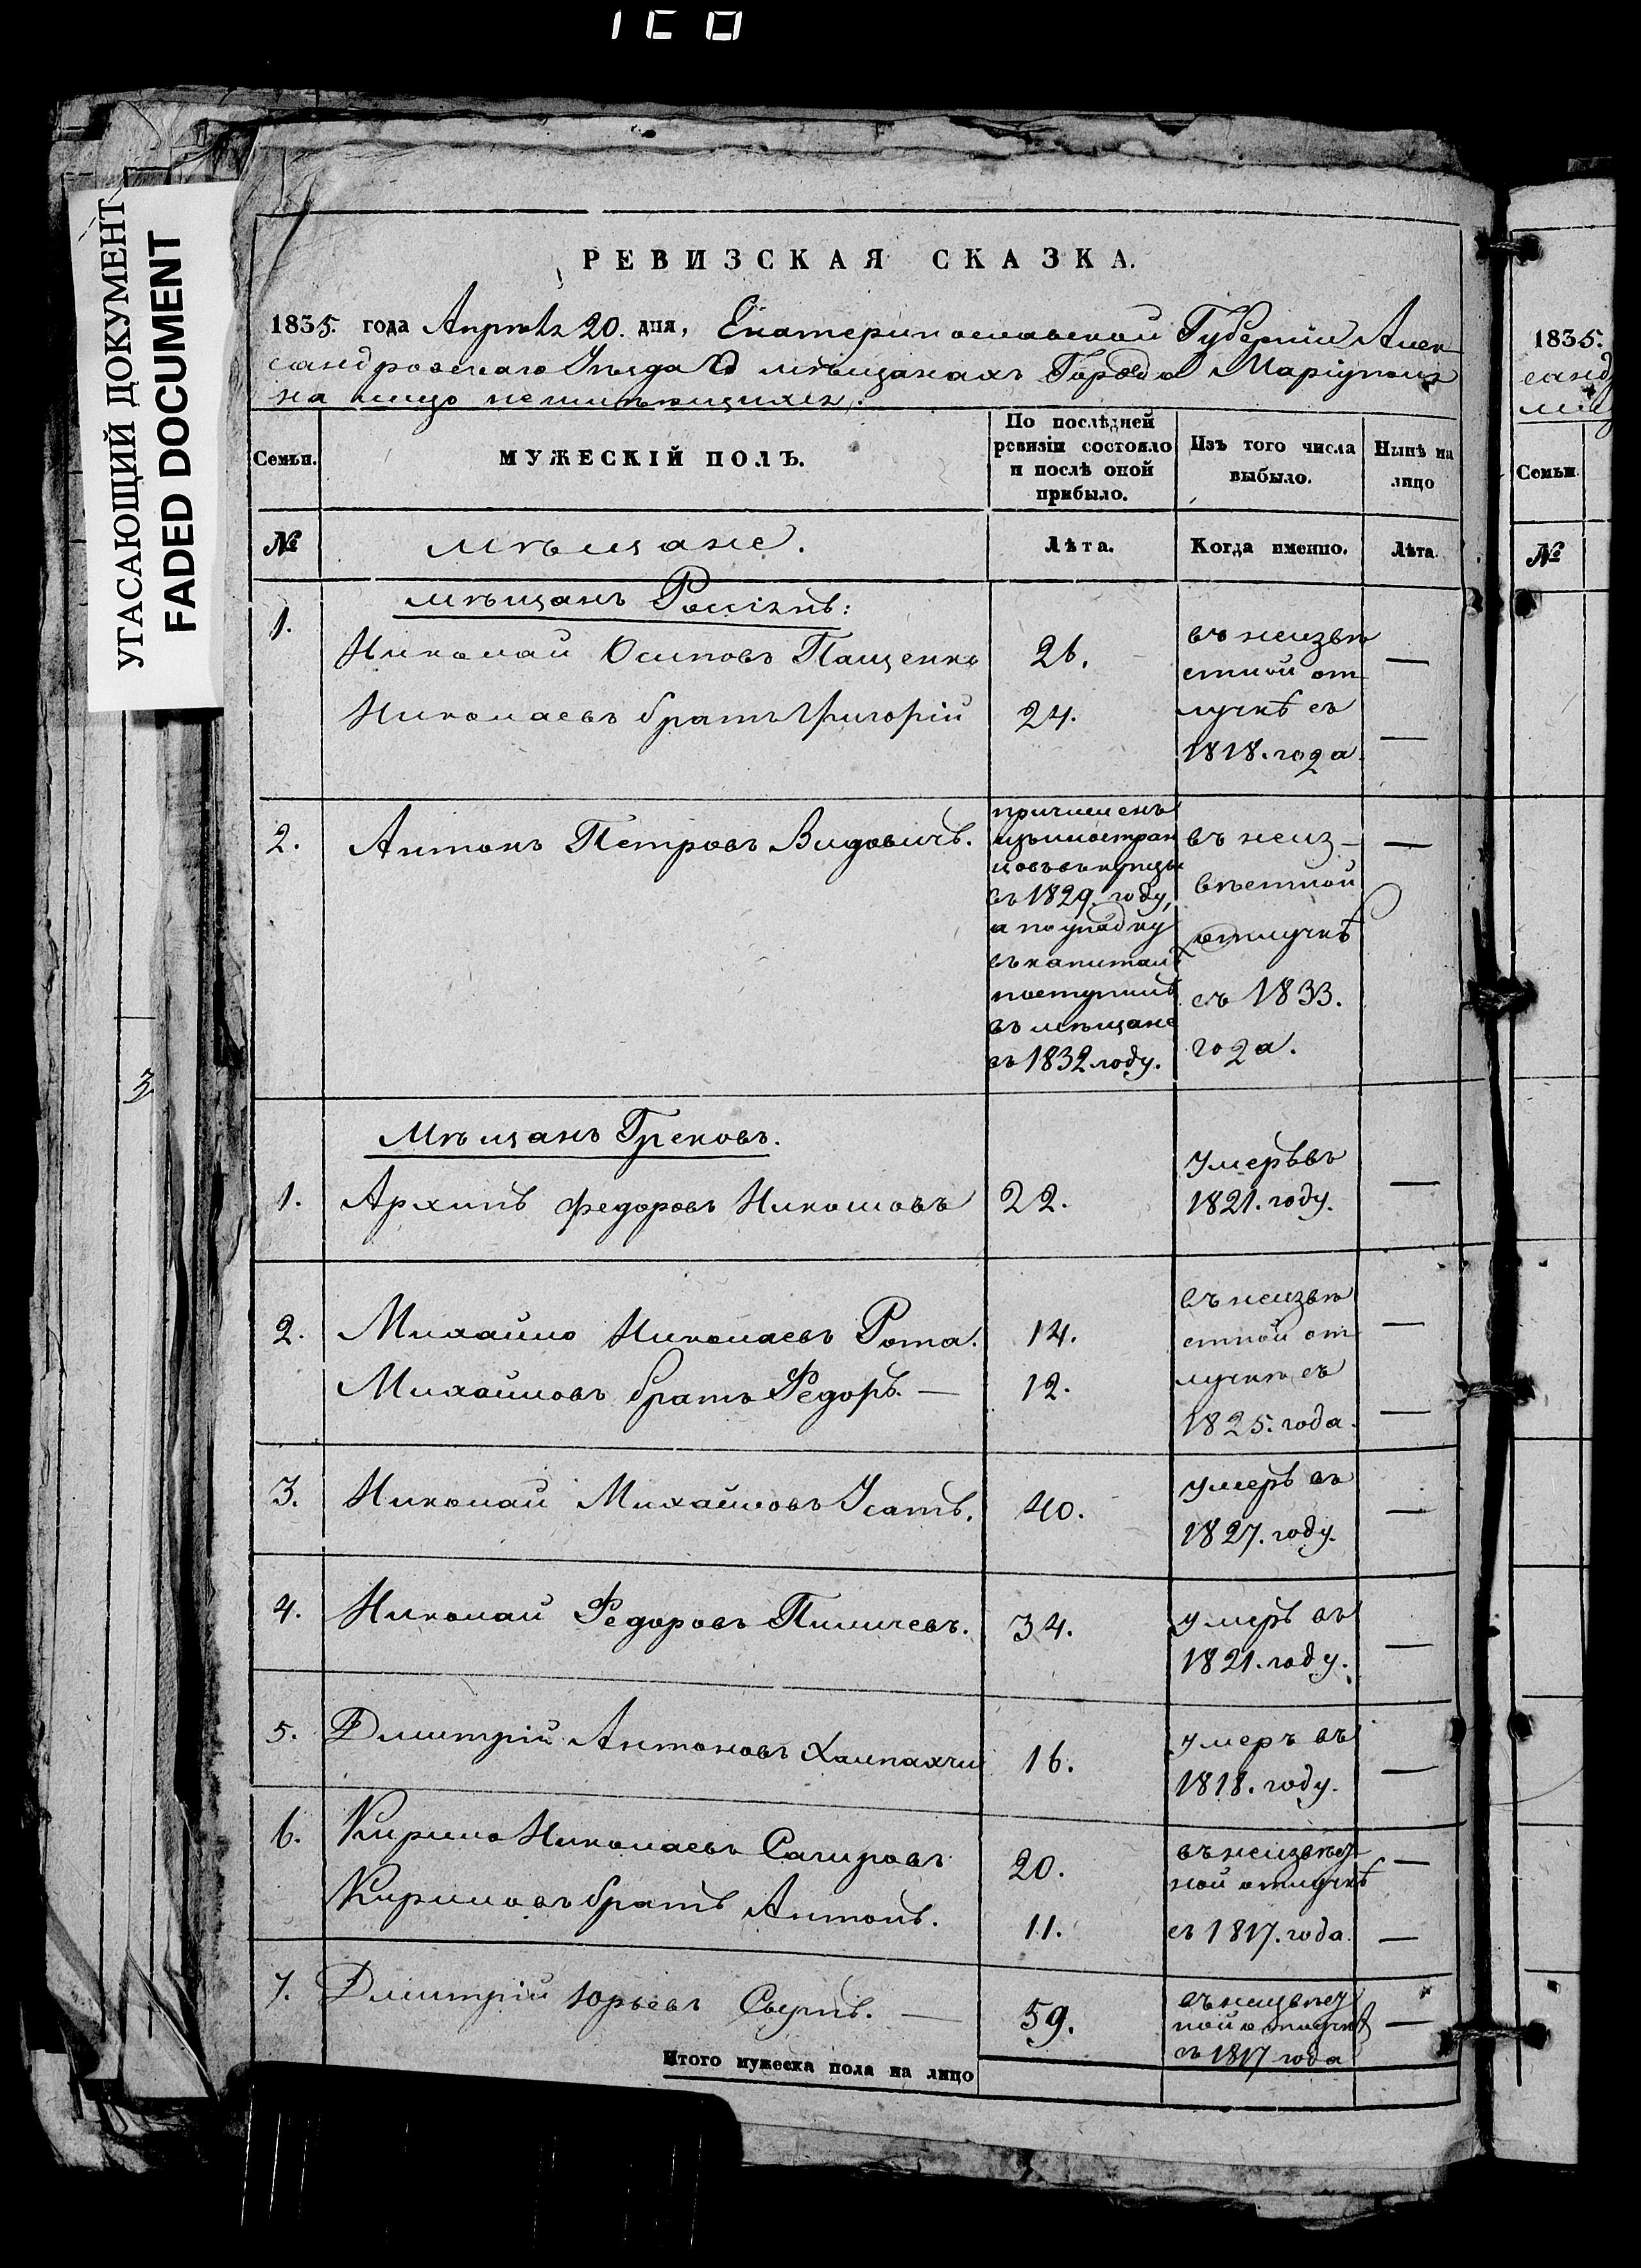 УГАСАЮЩИЙ ДОКУМЕНТ
FADED DOCUMENT
РЕВИЗСКАЯ СКАЗКА.
1835. года Апреля 20. дня, Екатеринославской Губерніи Алек
сандровскаго Уезда о мѣщанахъ Города Маріуполя
на лицо неимѣющихся.
Семьи.
МУЖЕСКІЙ ПОЛЪ.
По послѣдней
ревизіи состояло
и послѣ оной
прибыло.
Изъ того числа
выбыло.
Нынѣ на
лицо
№
мѣщане.
Лѣта.
Когда именно.
Лѣта.
мѣщанъ
1.
Николай Осиповъ Пащенко
26.
въ неизвѣ
стной от
Николаевъ братъ Григорій
24.
лучкѣ съ
1818. года.
2.
Антонъ Петровъ Видовичъ.
причисленъ
изъ иностран
цовъ въ купцы
въ 1829. году,
а по упадку
въ капиталѣ
поступилъ
въ мѣщане
въ 1832 году.
въ неиз-
вѣстной
отлучкѣ
съ 1833.
года.
Мѣщанъ Грековъ.
1.
Архипъ Федоровъ
22.
умеръ въ
1821. году.
2.
Михайло Николаевъ Рота.
14.
въ неизвѣ
стной от
Михайловъ братъ Федоръ. —
12.
лучкѣ съ
1825. года.
3.
Николай Михайловъ Усатъ.
40.
умеръ въ
1827. году.
4.
Николай Федоровъ Пиличевъ.
34.
умеръ въ
1821. году.
5.
Дмитрій Антоновъ Халпахчи
16.
умеръ въ
1818. году.
6.
Кирило Николаевъ Сагировъ
20.
въ неизвѣст
ной отлучкѣ
Кириловъ братъ Антонъ.
11.
съ 1817. года.
7.
Дмитрій Юрьевъ —
59.
въ неизвѣст
ной отлучкѣ
съ 1817 года
Итого мужеска пола на лицо
1835.
санд
Семьи
№
3